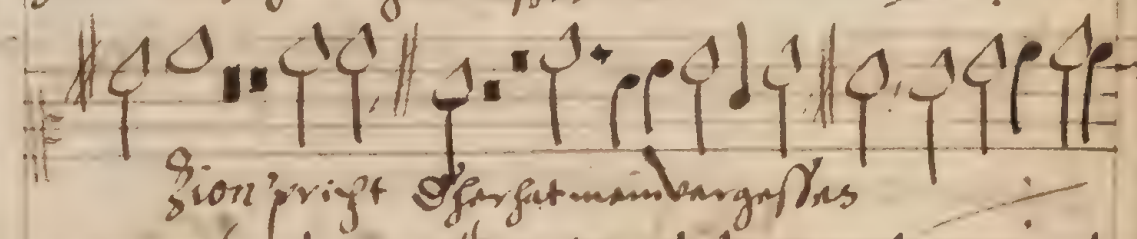 Zion spricht Dher hat mein vergessen